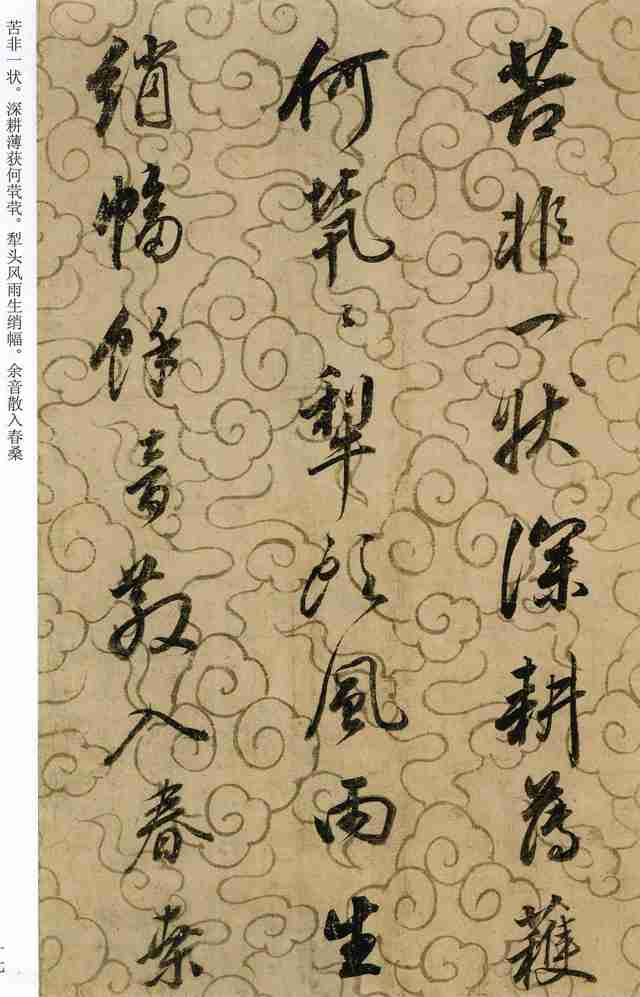 苦非一状深耕薄穫
何煢〻犁頭風雨生
綃幅餘音散入春桑
苦非一状。深耕薄获何茕茕。犁头风雨生绡幅。余音散入春桑